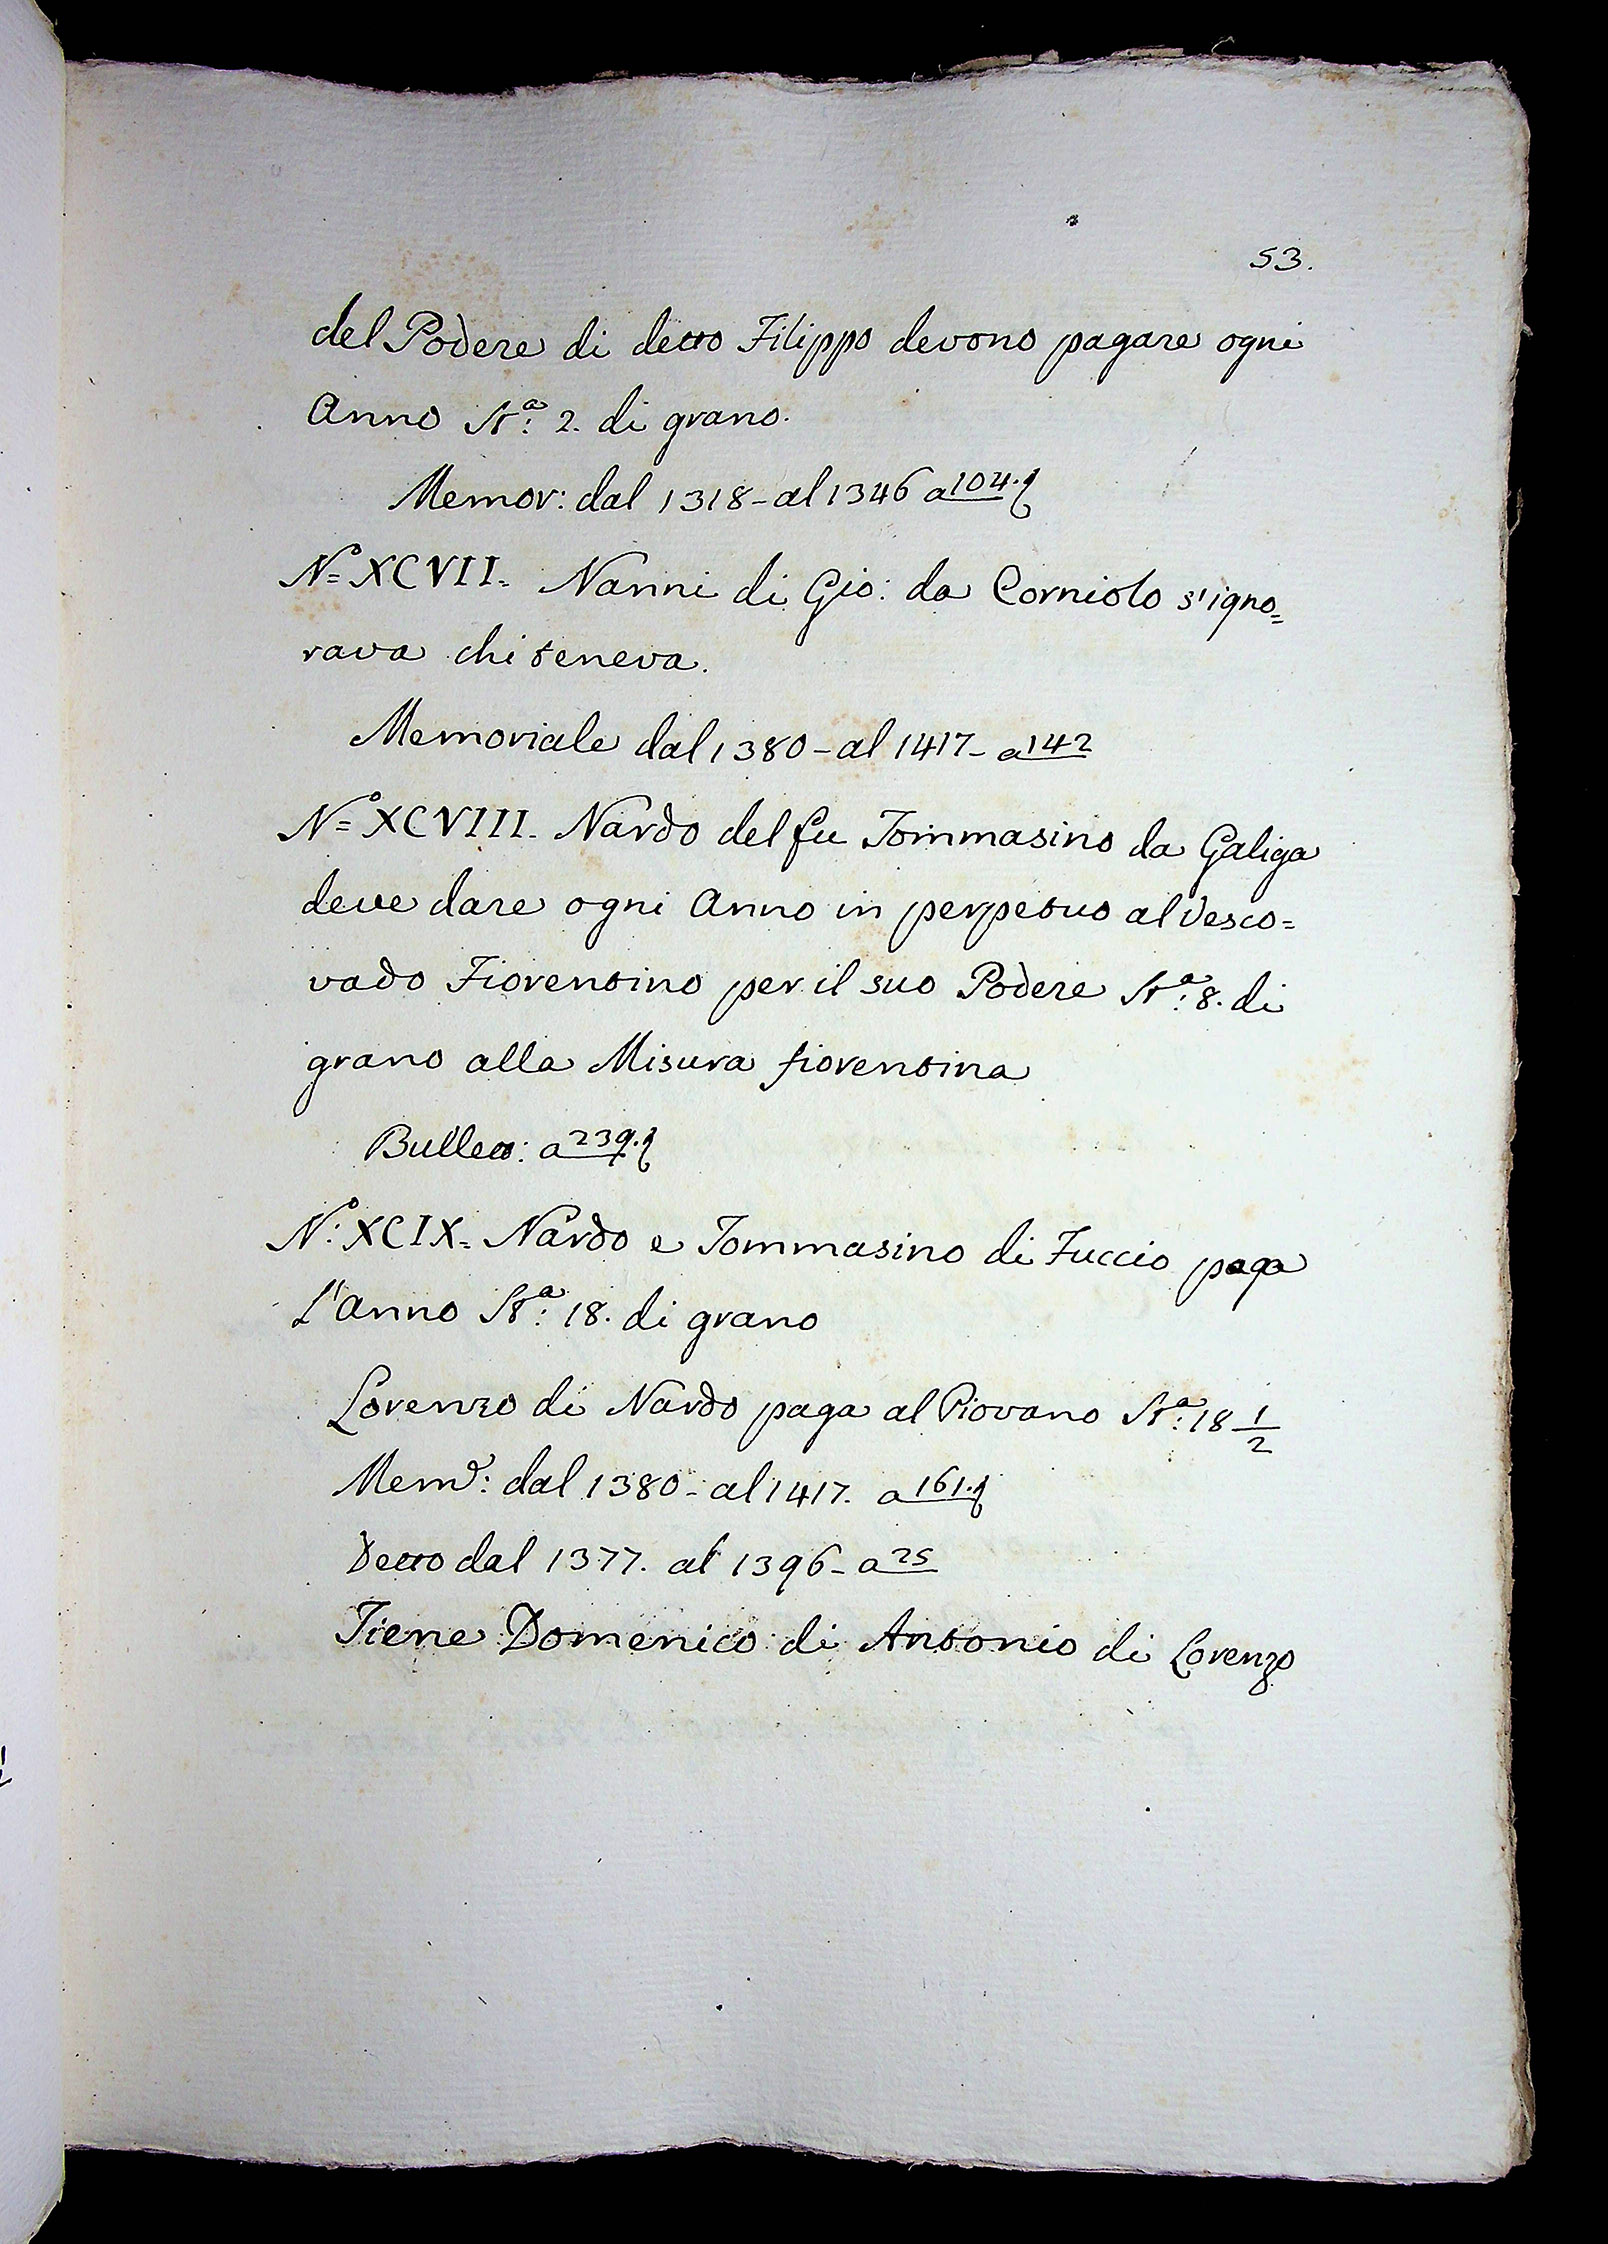 53.
del Podere di detto Filippo devono pagare ogni
Anno St.ª 2. di grano.
Memor: dal 1318 - al 1346 a 104.
N.º XCVII. Nanni di Gio: da Corniolo s'igno=
rava chi teneva.
Memoriale dal 1380 - al 1417 - a 142
N.º XCVIII. Nardo del fu Tommasino da Galiga
deve dare ogni Anno in perpetuo al Vesco=
vado Fiorentino per il suo Podere St.ª 8. di
grano alla Misura fiorentina
Bullett: a 239.
N.º XCIX. Nardo e Tommasino di Fuccio paga
L'anno St.ª 18. di grano
Lorenzo di Nardo paga al Piovano St.ª 18 1/2
Mem.e: dal 1380 - al 1417. a 161.
Detto dal 1377. al 1396 - a 25
Tiene Domenico di Antonio di Lorenzo